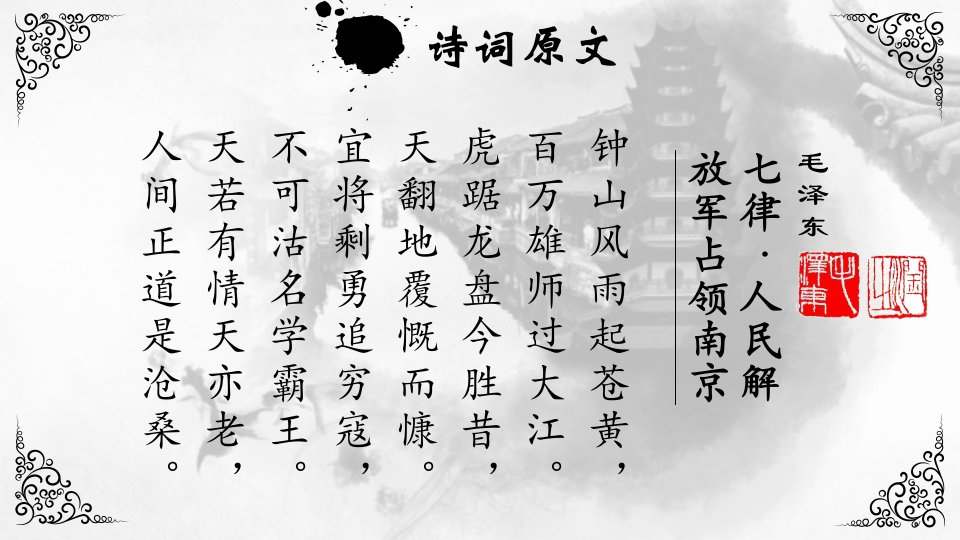 诗词原文
毛泽东
毛澤東
七律·人民解
放军占领南京
钟山风雨起苍黄，
百万雄师过大江。
虎踞龙盘今胜昔，
天翻地覆慨而慷。
宜将剩勇追穷寇，
不可沽名学霸王。
天若有情天亦老，
人间正道是沧桑。